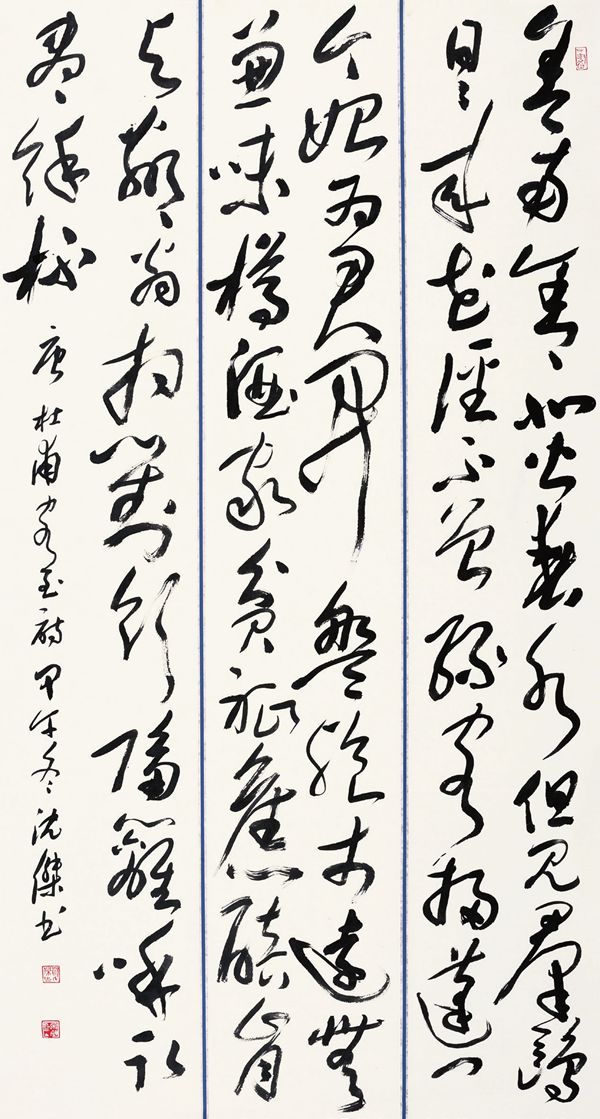 舍南舍北皆春水但見羣鷗
日日来花徑不曾緣客掃蓬門
今始為君開盤飧市遠無
兼味樽酒家貧祗舊醅肯
与鄰翁相對飲隔籬呼取
盡餘杯 唐杜甫客至詩甲午冬沈傑书